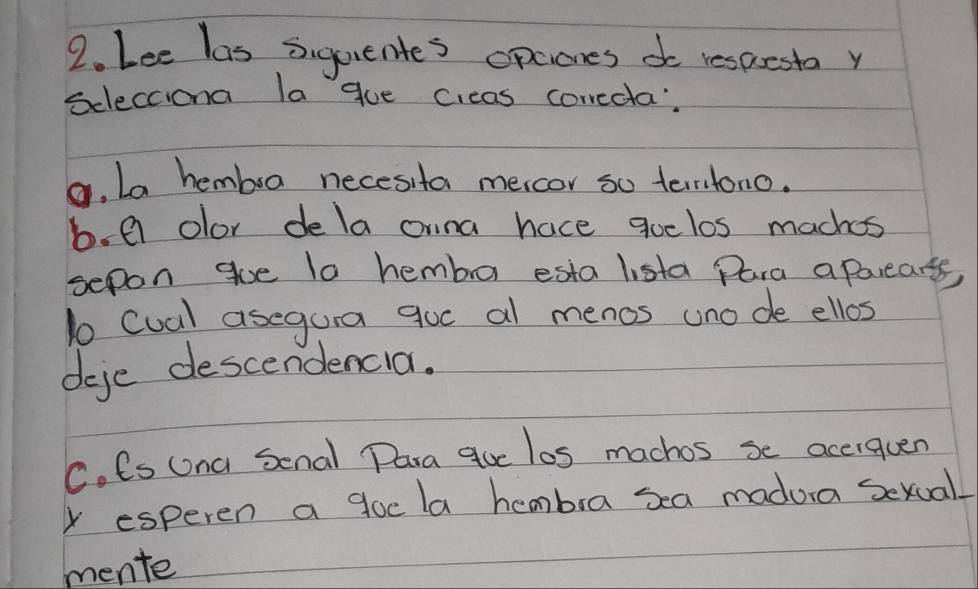 2. Lee las siguientes opciones de respuesta y
selecciona la que creas correcta:
a. La hembra necesita mercar su territorio.
b. el olor de la orina hace que los machos
sepan que la hembra esta lista Para aparearse,
lo cual asegura que al menos uno de ellos
deje descendencia.
c. Es una senal Para que los machos se acerquen
y esperen a que la hembra sea madura sexual-
mente